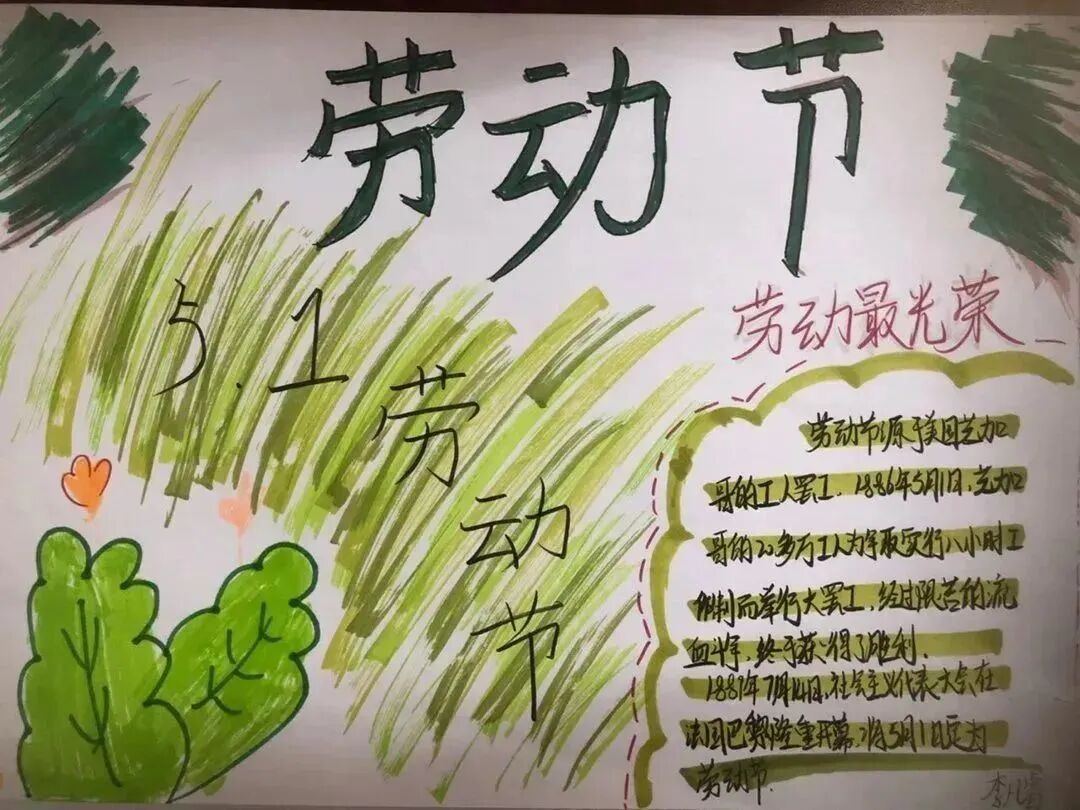 劳动节
5.1
劳动节
劳动最光荣
劳动节源于美国芝加
哥的工人罢工，1886年5月1日，芝加
哥的20多万工人为争取实行八小时工
作制而举行大罢工，经过艰苦的流
血斗争，终于获得了胜利.
1889年7月14日，社会主义代表大会在
法国巴黎隆重开幕，5月1日定为
劳动节.